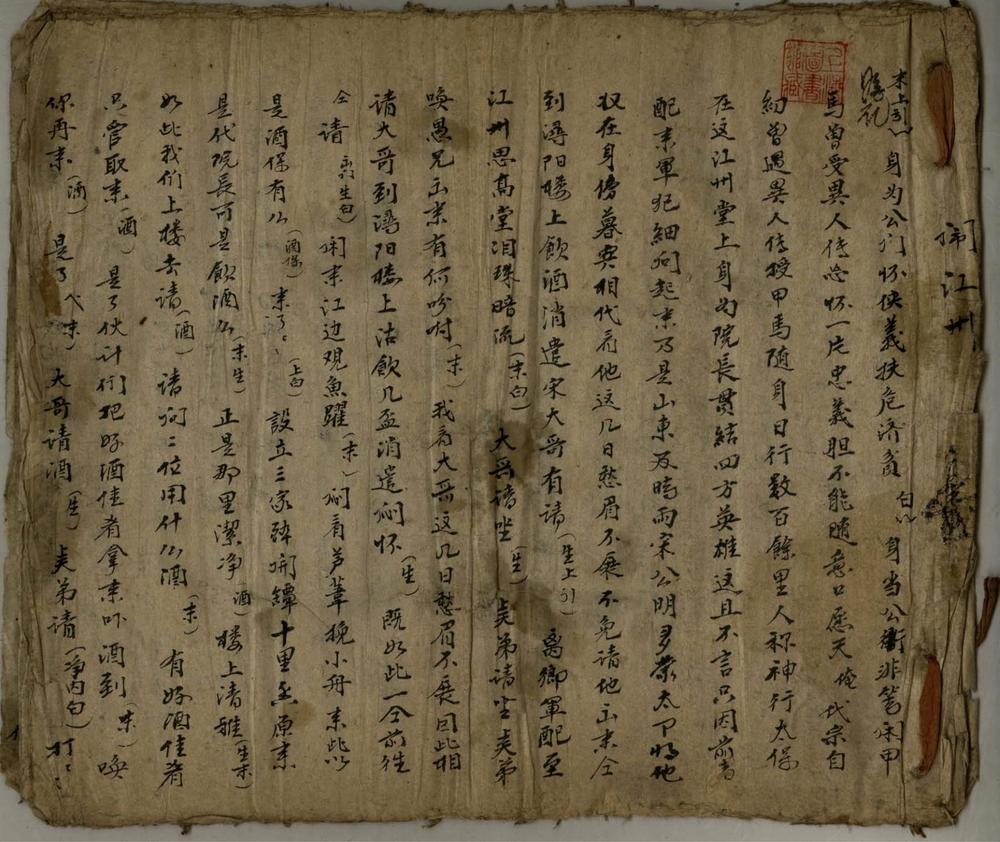 闹江州
末上引 身为公门怀侠义扶危济贫 白 身当公衛非等闲甲
馬曾受異人传 怀一片忠義胆不能随意口应天 俺 代宗自
幼曾遇異人传授甲馬随身日行数百餘里人称神行太保
在这江州堂上身为院長貫结四方英雄这且不言只因前者
配来軍犯細问起来乃是山東及時雨宋公明多蒙太下将他
収在身傍 相代看他这几日愁眉不展不免请他出来仝
到潯阳楼上飲酒消遣宋大哥有请(生上引) 离鄉軍配至
江州思高堂泪珠暗流(末白) 大哥请坐(生) 贤弟请坐贤弟
喚愚兄出来有何吩咐(末) 我看大哥这几日愁眉不展因此相
请大哥到潯阳楼上沽飲几盃消遣闷怀(生) 既如此一仝前往
仝请 (生白) 闲来江边观魚躍(末) 闷看芦葦挽小舟来此以
是酒保有么(酒保) 来了〻(上白) 設立三家 開罈十里 原来
是代院長可是飲酒么(末生) 正是那里潔净 酒 楼上清雅(生末)
如此我们上楼去请(酒) 请问二位用什么酒(末) 有好酒佳肴
只管取来(酒) 是了伙计们把好酒佳肴拿来吓酒到(末) 喚
你再来(酒) 是了 下(末) 大哥请酒(生) 贤弟请(净内白) 打〻